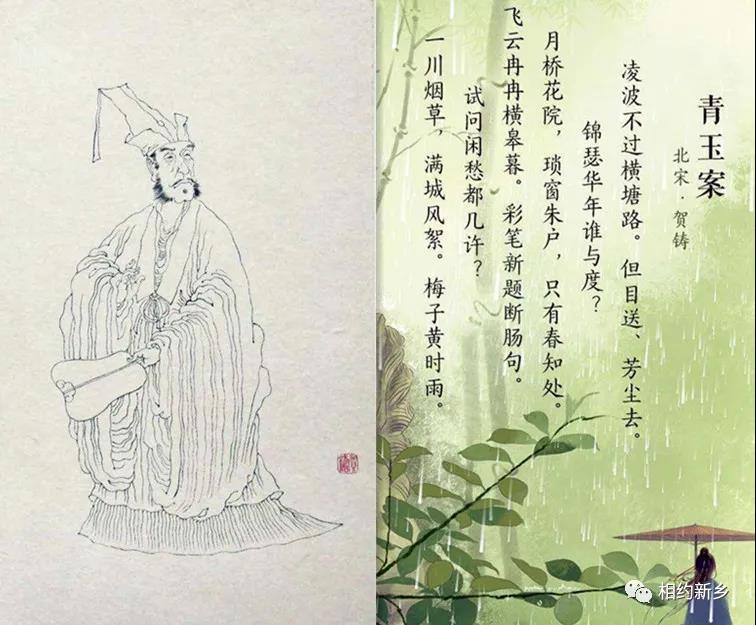 青玉案
北宋·贺铸
凌波不过横塘路。但目送、芳尘去。
锦瑟华年谁与度？
月桥花院，琐窗朱户，只有春知处。
飞云冉冉横皋暮。彩笔新题断肠句。
试问闲愁都几许？
一川烟草，满城风絮。梅子黄时雨。
相约新乡